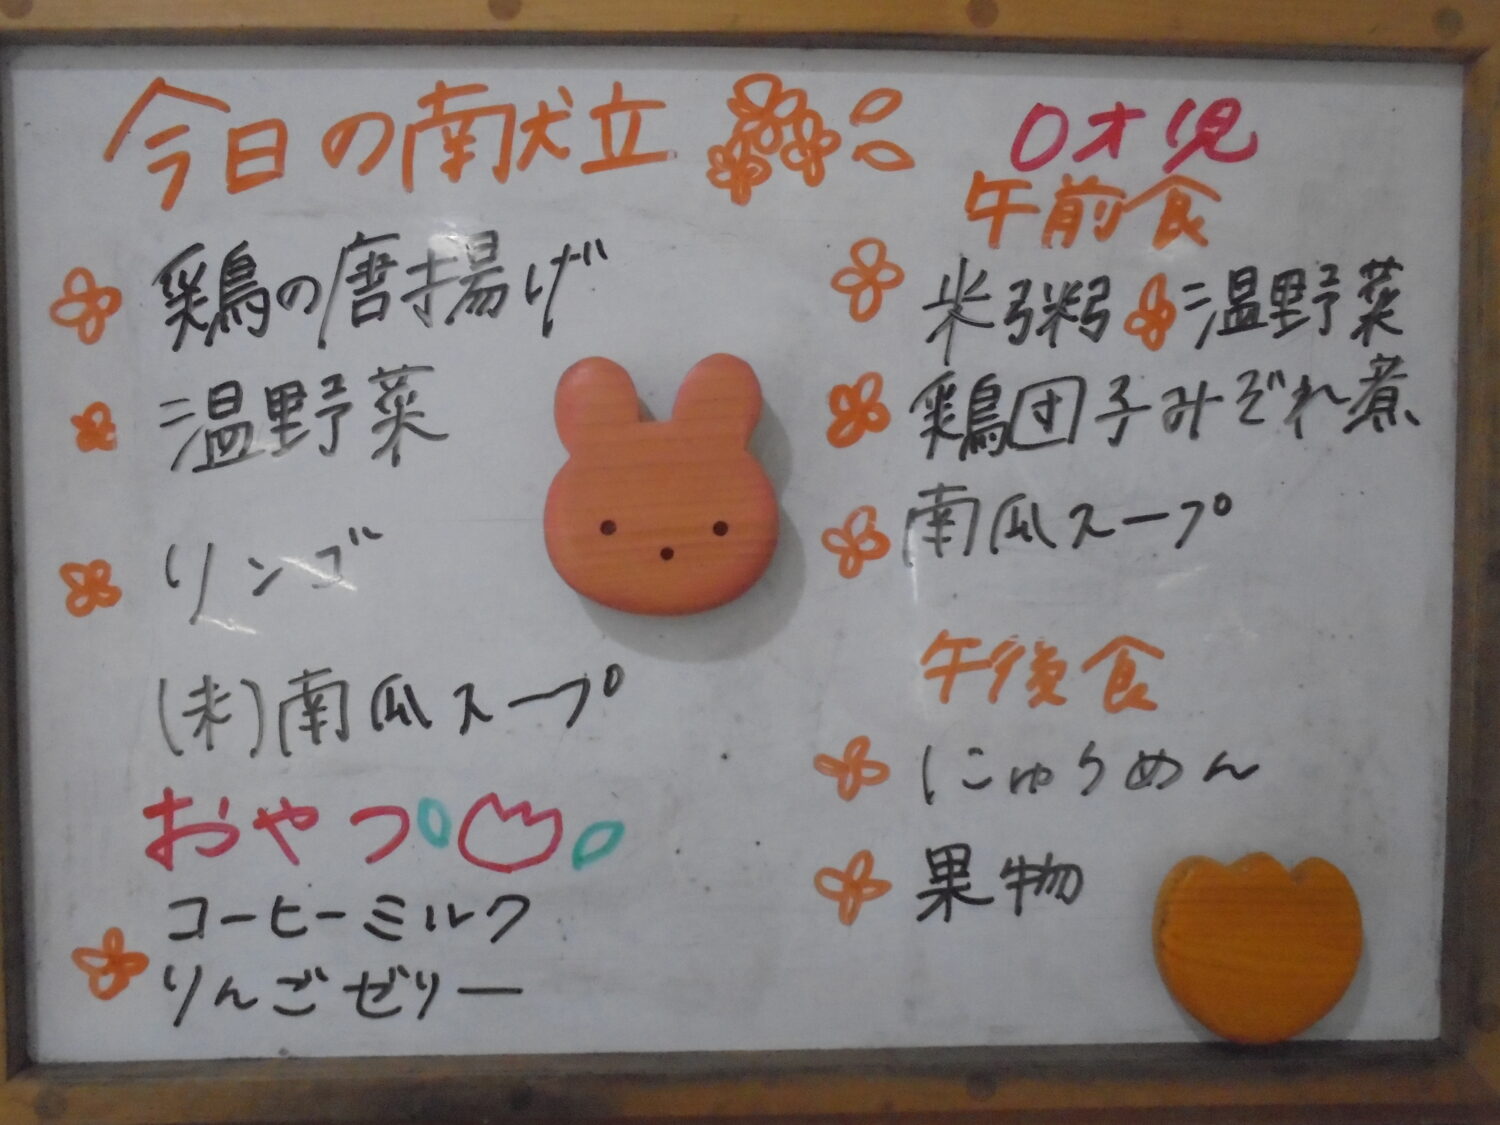 今日の献立
鶏の唐揚げ
温野菜
リンゴ
(未)南瓜スープ
おやつ
コーヒーミルク
りんごゼリー
0才児
午前食
米粥 温野菜
鶏団子みぞれ煮
南瓜スープ
午後食
にゅうめん
果物